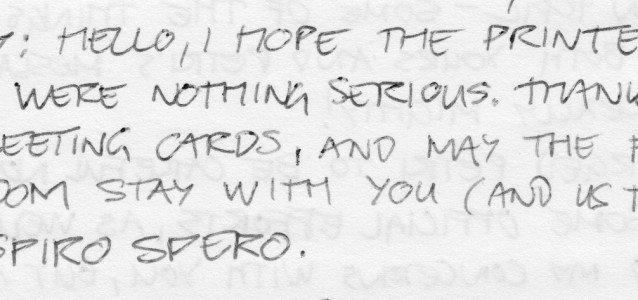 Y: HELLO, I HOPE THE PRINTE
WERE NOTHING SERIOUS. THANK
EETING CARDS, AND MAY THE F
DOM STAY WITH YOU (AND US T
SPIRO SPERO.